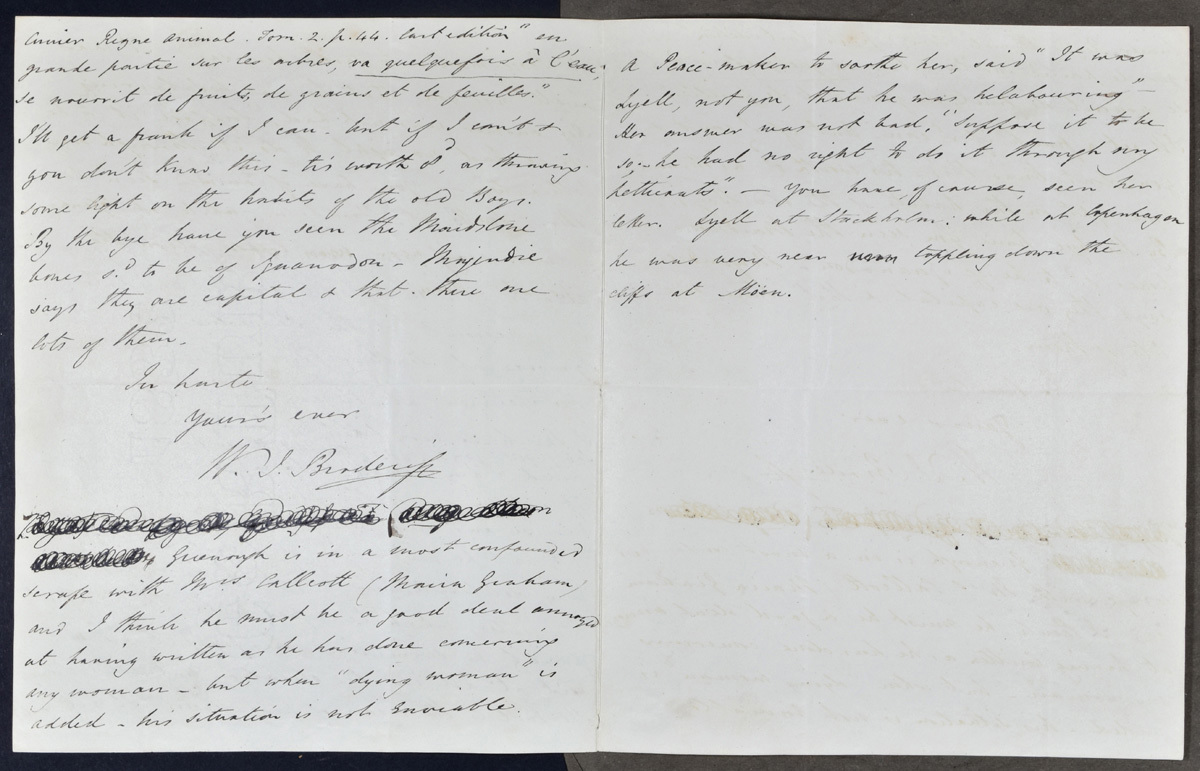 Cuvier Regne Animal. Tom. 2. p. 44. last edition "en
grande partie sur les arbres, va quelquefois à l'eau,
se nourrit de fruits, de grains et de feuilles."
I'll get a frank if I can. but if I can't &
you don't know this - tis worth 8d, as throwing
some light on the habits of the old Boys.
By the bye have you seen the Maidstone
bones sd to be of Iguanodon - Majendie
says they are capital & that there are
lots of them.
In haste
Yours ever
W. J. Broderip
Greenough is in a most confounded
scrape with Mrs Callcott (Maria Graham)
and I think he must be a good deal annoyed
at having written as he has done concerning
any woman - but when "dying woman" is
added - his situation is not enviable.
A Peace-maker to soothe her, said "It was
Lyell, not you, that he was belabouring" -
Her answer was not bad, "suppose it to be
so - he had no right to do it through my
petticoats". - You have, of course, seen her
letter. Lyell at Stockholm: while at Copenhagen
he was very near toppling down the
cliffs at Möen.